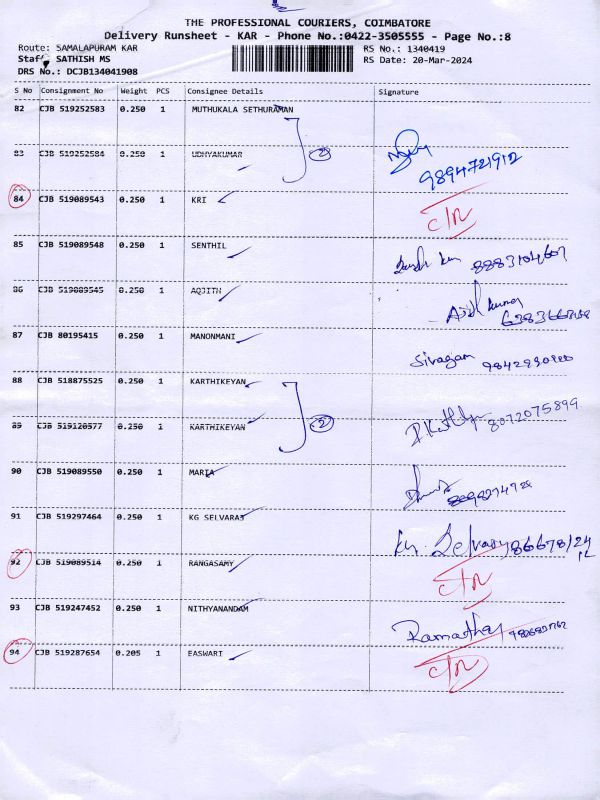 THE PROFESSIONAL COURIERS, COIMBATORE
Delivery Runsheet - KAR - Phone No.:0422-3505555 - Page No.:8
Route: SAMALAPURAM KAR RS No.: 1340419
Staff: SATHISH MS RS Date: 20-Mar-2024
DRS No.: DCJB134041908
S No Consignment No Weight PCS Consignee Details Signature
82 CJB 519252583 0.250 1 MUTHUKALA SETHURAMAN
83 CJB 519252584 0.250 1 UDHYAKUMAR 2 9894721912
84 CJB 519089543 0.250 1 KRI C/R
85 CJB 519089548 0.250 1 SENTHIL 8883104607
86 CJB 519089545 0.250 1 AQJITH
87 CJB 80195415 0.250 1 MANONMANI Sivagam
88 CJB 518875525 0.250 1 KARTHIKEYAN
89 CJB 519120577 0.250 1 KARTHIKEYAN 2 8072075899
90 CJB 519089550 0.250 1 MARIA
91 CJB 519297464 0.250 1 KG SELVARAJ
92 CJB 519089514 0.250 1 RANGASAMY C/R
93 CJB 519247452 0.250 1 NITHYANANDAM
94 CJB 519287654 0.205 1 EASWARI C/R